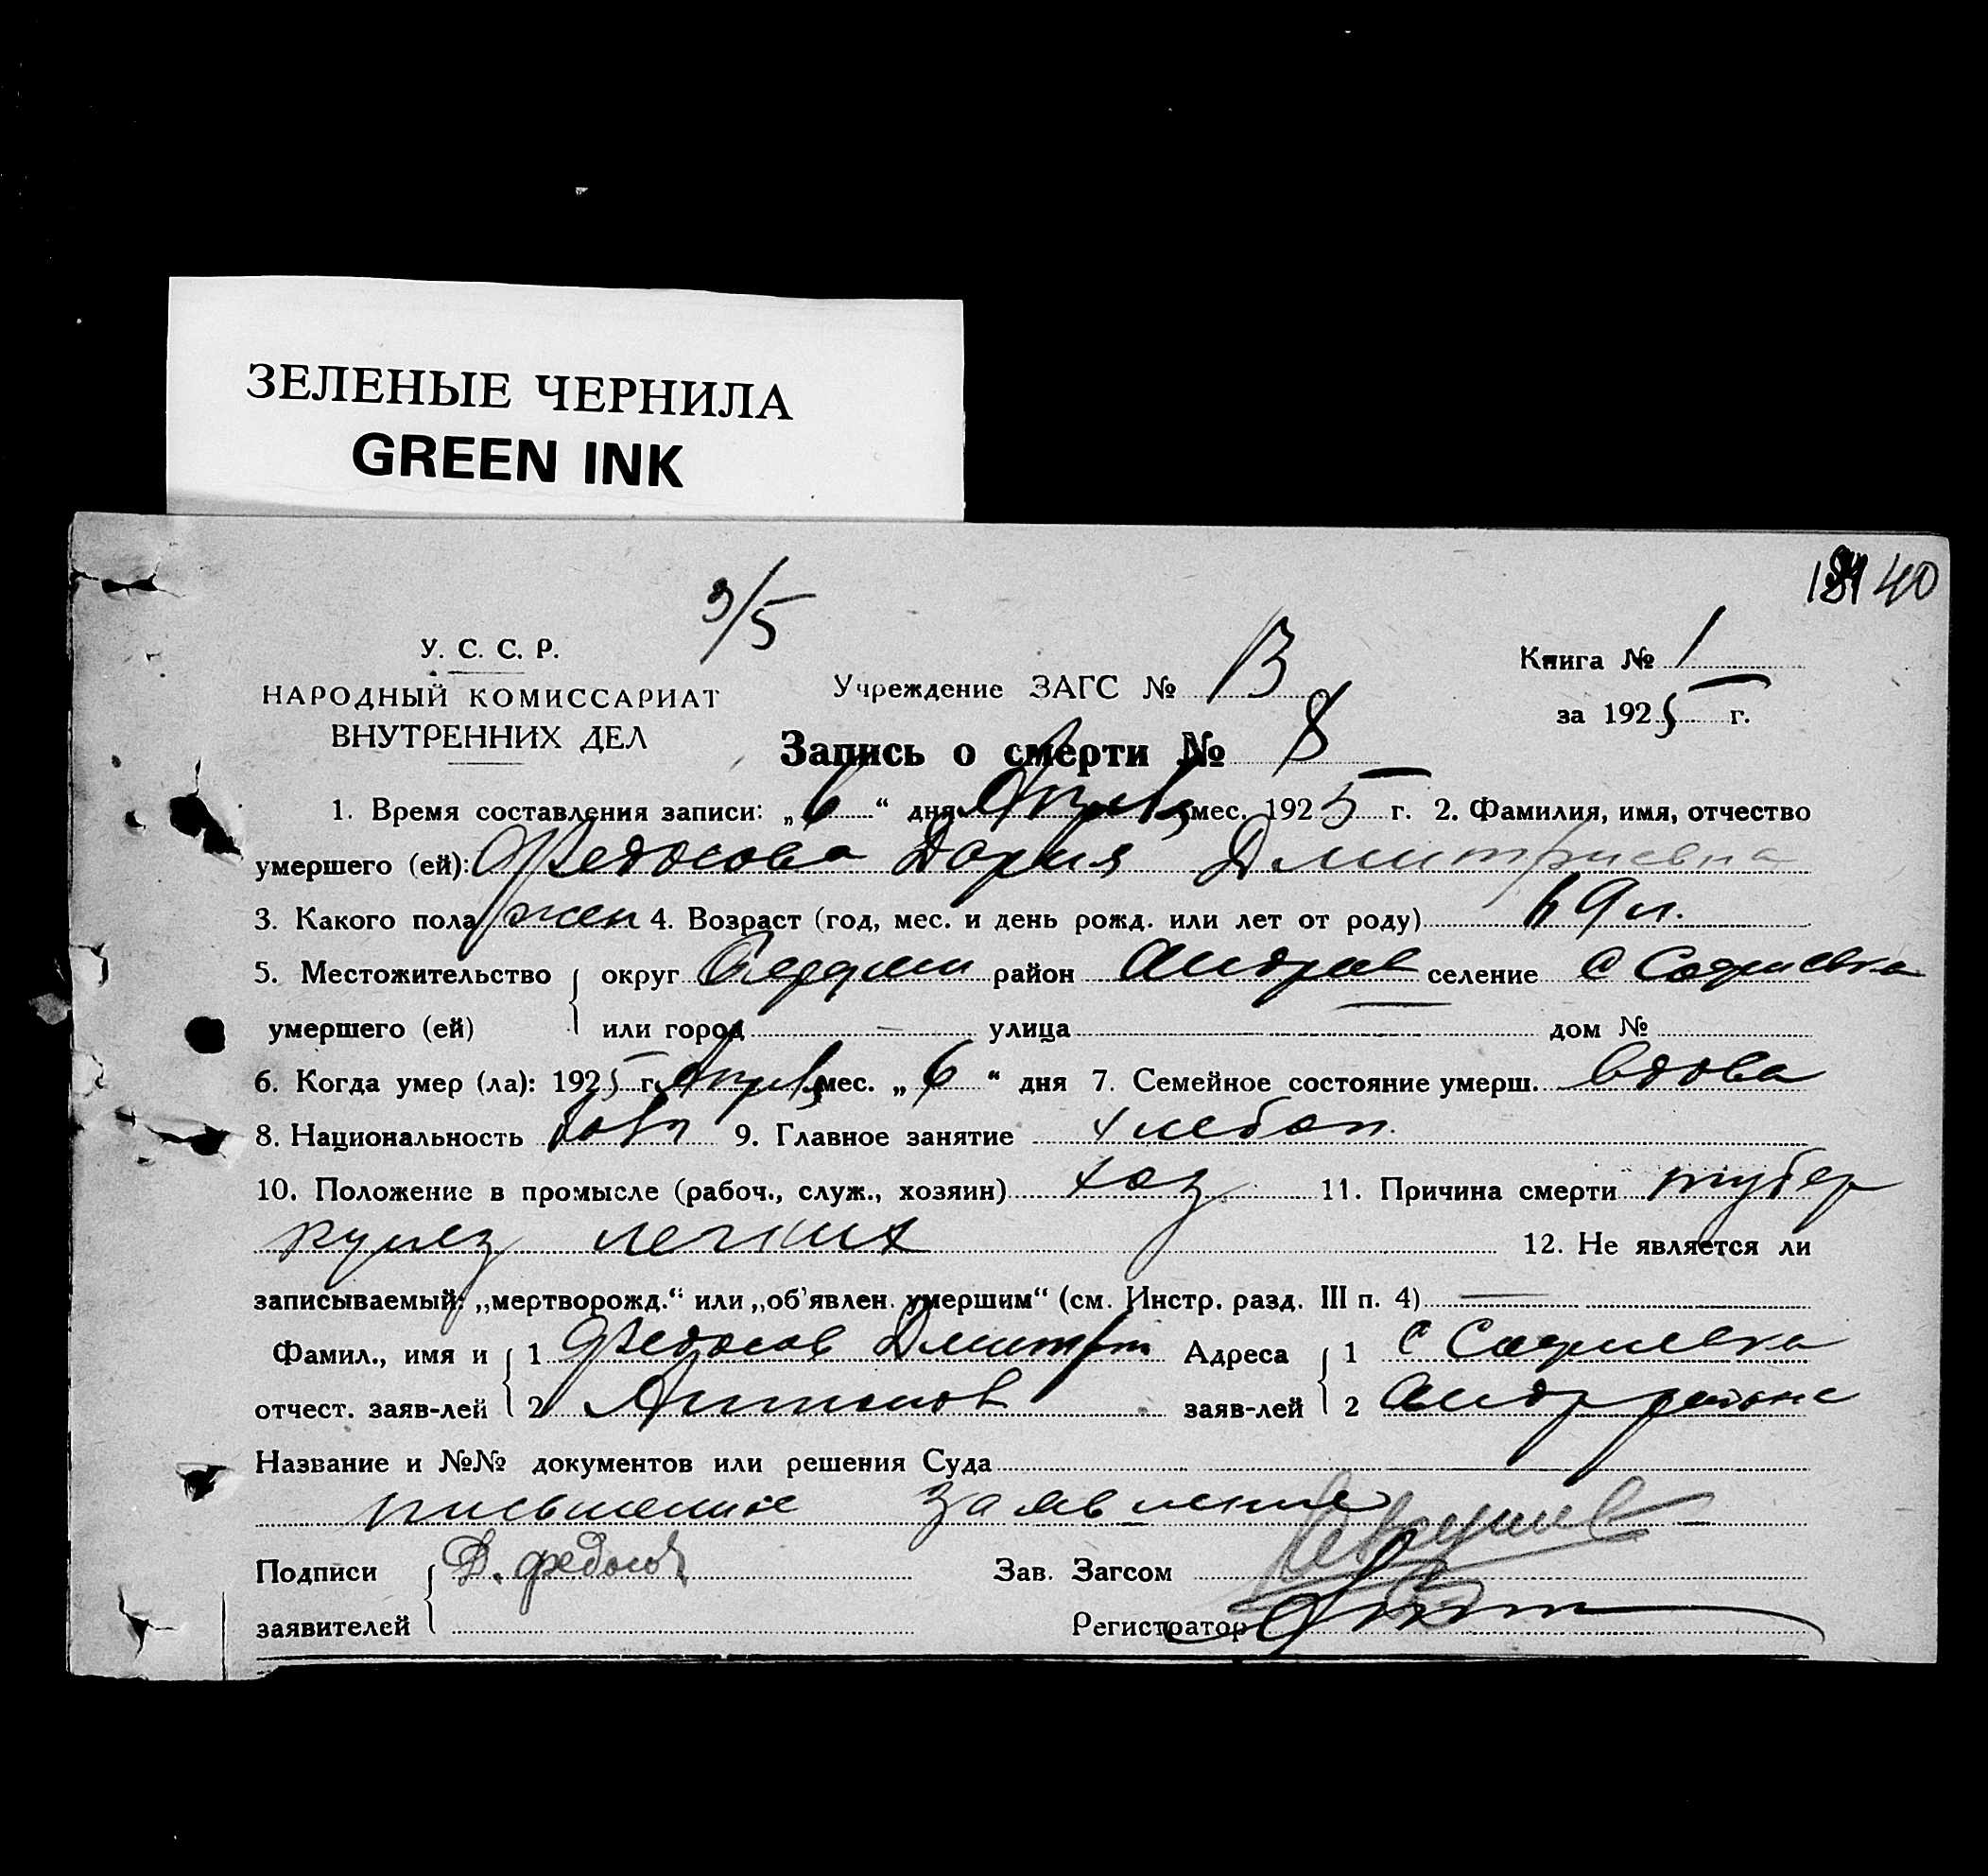 ЗЕЛЕНЫЕ ЧЕРНИЛА
GREEN INK
40
3/5
У. С. С. Р.
НАРОДНЫЙ КОМИССАРИАТ
ВНУТРЕННИХ ДЕЛ
Учреждение ЗАГС №
Книга № 1
за 1925 г.
Запись о смерти № 8
1. Время составления записи: „6“ дня мес. 1925 г. 2. Фамилия, имя, отчество
умершего (ей): Федосова Дария Дмитриевна
3. Какого пола жен 4. Возраст (год, мес. и день рожд. или лет от роду) 69 л.
5. Местожительство округ район Андреев селение с Софиевка
умершего (ей) или город улица дом №
6. Когда умер (ла): 1925 г. мес. „6“ дня 7. Семейное состояние умерш. вдова
8. Национальность 9. Главное занятие хлебоп.
10. Положение в промысле (рабоч., служ., хозяин) хоз 11. Причина смерти тубер
кулез легких 12. Не является ли
записываемый: „мертворожд.“ или „об'явлен. умершим“ (см. Инстр. разд. III п. 4)
Фамил., имя и 1 Федосов Дмитрий Адреса 1 с Софиевка
отчест. заяв-лей 2 заяв-лей 2 Андр района
Название и №№ документов или решения Суда
письменное заявление
Подписи Д. Федосов Зав. Загсом
заявителей Регистратор